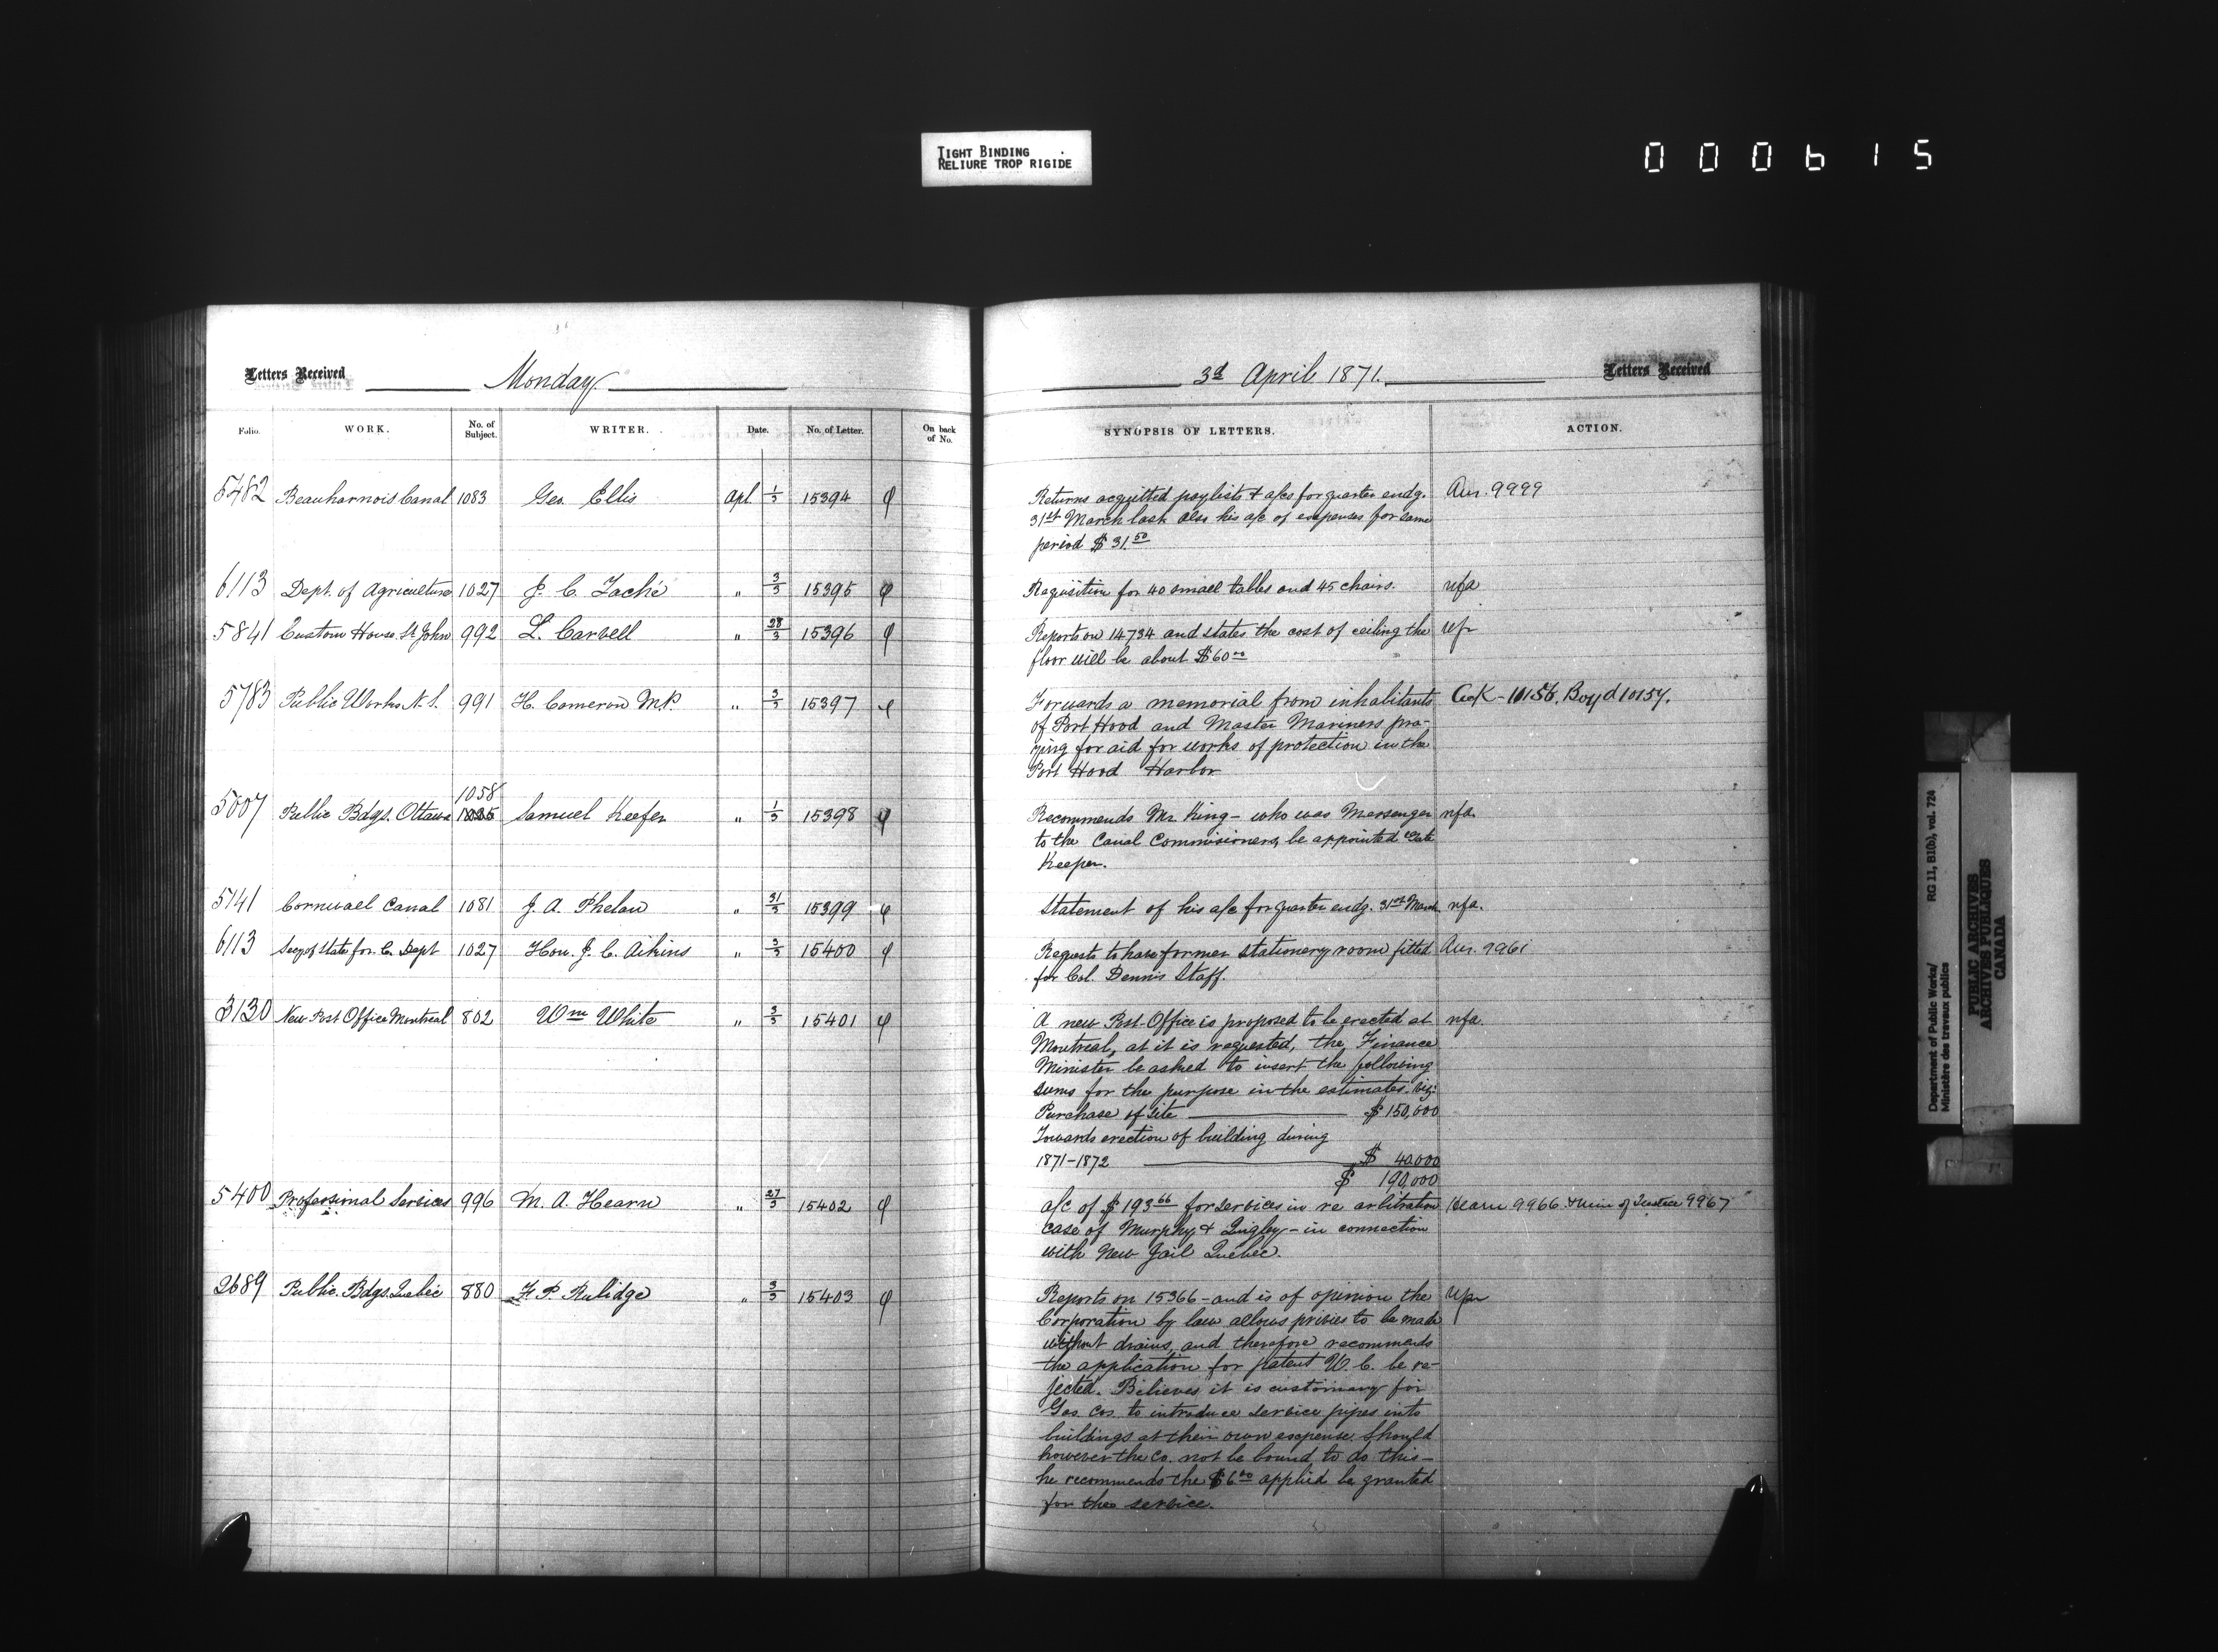 TIGHT BINDING
RELIURE TROP RIGIDE
000615
Letters Received
Monday
3d April 1871.
Letters Received
Folio. WORK. No. of Subject. WRITER. Date. No. of Letter. On back of No. SYNOPSIS OF LETTERS. ACTION.
5482 Beauharnois Canal 1083 Geo. Ellis Apl 1/3 15394 Returns acquitted paylists & a/cs for quarter endg. Aur. 9999
31st March last also his a/c of expenses for same
period $31.50
6113 Dept. of Agriculture 1027 J. C. Taché " 3/3 15395 Requisition for 40 small tables and 45 chairs. nfa
5841 Custom House St John 992 L. Carvell " 28/3 15396 Reports on 14734 and states the cost of ceiling the
floor will be about $60 00
5783 Public Works N.S. 991 H. Cameron M.P. " 3/3 15397 Forwards a memorial from inhabitants Ack - 10156, Boyd 10157.
of Port Hood and Master Mariners pra-
ying for aid for works of protection in the
Port Hood Harbor
1058
5007 Public Bdgs. Ottawa 1025 Samuel Keefer " 1/3 15398 Recommends Mr. King - who was Messenger nfa.
to the Canal Commisioners, be appointed Gate
Keeper.
5141 Cornwall Canal 1081 J. A. Phelan " 31/3 15399 Statement of his a/c for quarter endg. 31st March nfa.
6113 Secy of State for C. Dept 1027 Hon. J. C. Aikins " 3/3 15400 Requests to have former Stationery room fitted Aur. 9961
for Col. Dennis Staff.
3130 New Post Office Montreal 802 Wm White " 3/3 15401 A new Post-Office is proposed to be erected at nfa.
Montreal, at it is requested, the Finance
Minister be asked to insert the following
sums for the purpose in the estimates. viz:
Purchase of Site $150,000
Towards erection of building during
1871-1872 $ 40,000
$ 190,000
5400 Professional Services 996 M. A. Hearn " 27/3 15402 a/c of $193 66 for services in re arbitration Hearn 9966 & Min of Justice 9967
case of Murphy & Quigley - in connection
with New Jail Quebec.
2689 Public Bdgs. Quebec 880 F. P. Rubidge " 3/3 15403 Reports on 15366 - and is of opinion the
Corporation by law allows privies to be made
without drains, and therefore recommends
the application for patent W. C. be re-
jected. Believes it is customary for
Gas Cos. to introduce service pipes into
buildings at their own expense. Should
however the Co. not be bound to do this -
he recommends the $6 00 applied be granted
for the service.
Department of Public Works/ RG 11, B1(b), vol. 724
Ministère des travaux publics
PUBLIC ARCHIVES
ARCHIVES PUBLIQUES
CANADA